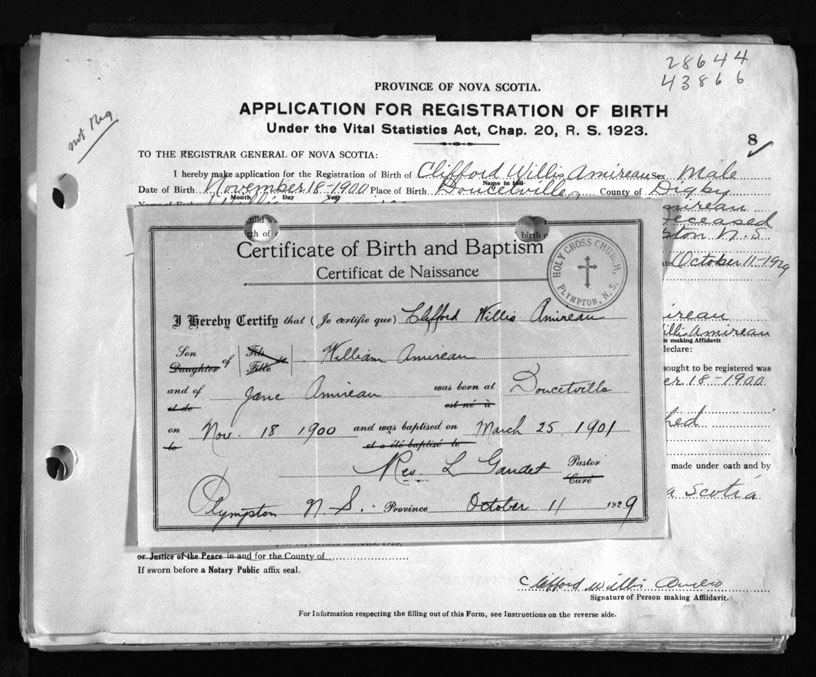 28644
43866
not Reg
PROVINCE OF NOVA SCOTIA.
APPLICATION FOR REGISTRATION OF BIRTH
Under the Vital Statistics Act, Chap. 20, R. S. 1923.
8
TO THE REGISTRAR GENERAL OF NOVA SCOTIA:
I hereby make application for the Registration of Birth of Clifford Willis Amireau Sex Male
Name in full
Date of Birth November 18-1900 Place of Birth Doucetville, County of Digby
Month Day Year
mireau
eceased
pton N.S
October 11-1929
Certificate of Birth and Baptism
Certificat de Naissance
HOLY CROSS CHURCH, PLYMPTON, N.S.
I Hereby Certify that (Je certifie que) Clifford Willis Amireau
Son Fils
Daughter of Fille William Amireau
and of Jane Amireau was born at Doucetville
et de est né à
on Nov. 18 1900 and was baptised on March 25, 1901
le et a été baptisé le
Rev. L Gaudet Pastor
Curé
Plympton N. S. Province October 11 1929
ireau
illis Amireau
n making Affidavit
declare:
sought to be registered was
er 18-1900
hed
made under oath and by
a Scotia
or Justice of the Peace in and for the County of
If sworn before a Notary Public affix seal.
Clifford Willis
Signature of Person making Affidavit.
For Information respecting the filling out of this Form, see Instructions on the reverse side.